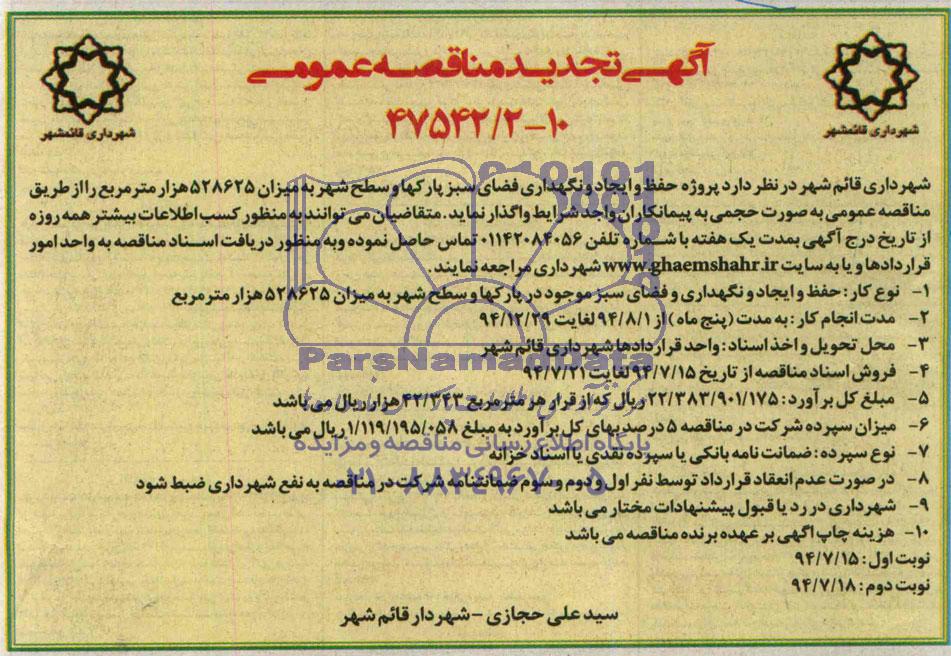 آگهی تجدید مناقصه عمومی
۴۷۵۴۲/۲-۱۰
شهرداری قائمشهر
شهرداری قائمشهر
شهرداری قائم شهر در نظر دارد پروژه حفظ و ایجاد و نگهداری فضای سبز پارکها و سطح شهر به میزان ۵۲۸۶۲۵ هزار مترمربع را از طریق
مناقصه عمومی به صورت حجمی به پیمانکاران واجد شرایط واگذار نماید. متقاضیان می توانند به منظور کسب اطلاعات بیشتر همه روزه
از تاریخ درج آگهی بمدت یک هفته با شماره تلفن ۰۱۱۴۲۰۸۴۰۵۶ تماس حاصل نموده وبه منظور دریافت اسناد مناقصه به واحد امور
قراردادها و یا به سایت www.ghaemshahr.ir شهرداری مراجعه نمایند.
۱- نوع کار: حفظ و ایجاد و نگهداری و فضای سبز موجود در پارکها و سطح شهر به میزان ۵۲۸۶۲۵ هزار مترمربع
۲- مدت انجام کار: به مدت (پنج ماه) از ۹۴/۸/۱ لغایت ۹۴/۱۲/۲۹
۳- محل تحویل و اخذ اسناد: واحد قراردادها شهرداری قائم شهر
۴- فروش اسناد مناقصه از تاریخ ۹۴/۷/۱۵ لغایت ۹۴/۷/۲۱
۵- مبلغ کل برآورد: ۲۲/۳۸۳/۹۰۱/۱۷۵ ریال که از قرار هر مترمربع ۴۲/۳۴۳ هزار ریال می باشد
۶- میزان سپرده شرکت در مناقصه ۵ درصد بهای کل برآورد به مبلغ ۱/۱۱۹/۱۹۵/۰۵۸ ریال می باشد
۷- نوع سپرده: ضمانت نامه بانکی یا سپرده نقدی یا اسناد خزانه
۸- در صورت عدم انعقاد قرارداد توسط نفر اول و دوم و سوم ضمانتنامه شرکت در مناقصه به نفع شهرداری ضبط شود
۹- شهرداری در رد یا قبول پیشنهادات مختار می باشد
۱۰- هزینه چاپ اگهی بر عهده برنده مناقصه می باشد
نوبت اول: ۹۴/۷/۱۵
نوبت دوم: ۹۴/۷/۱۸
سید علی حجازی - شهردار قائم شهر
ParsNamadData
پایگاه اطلاع رسانی مناقصه و مزایده
۰۲۱-۸۸۳۴۹۶۷۰-۵